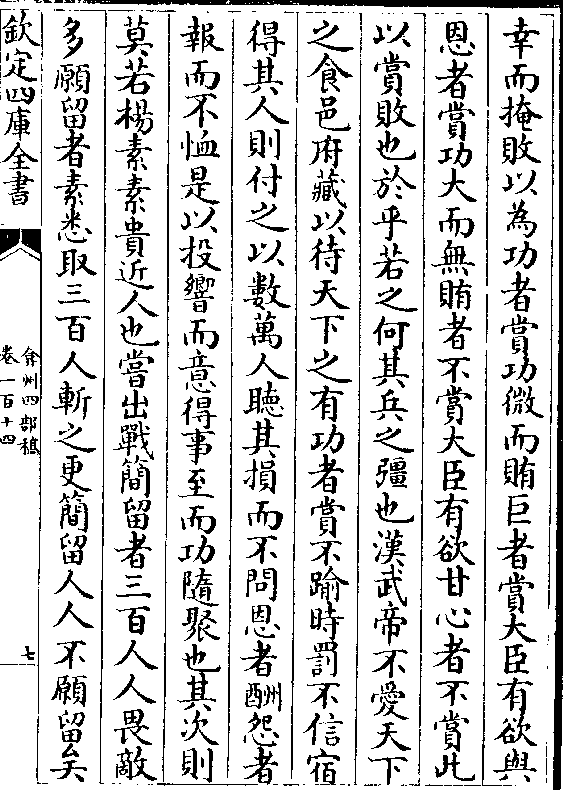 幸而掩敗以為功者賞功微而賄巨者賞大臣有欲與
恩者賞功大而無賄者不賞大臣有欲甘心者不賞此
以賞敗也於乎若之何其兵之彊也漢武帝不愛天下
之食邑府藏以待天下之有功者賞不踰時罰不信宿
得其人則付之以數萬人聽其損而不問恩者酬怨者
報而不恤是以投響而意得事至而功隨聚也其次則
莫若楊素素貴近人也嘗出戰簡留者三百人人畏敵
多願留者素悉取三百人斬之更簡留人人不願留矣
欽定四庫全書
弇州四部稿
卷一百十四
七